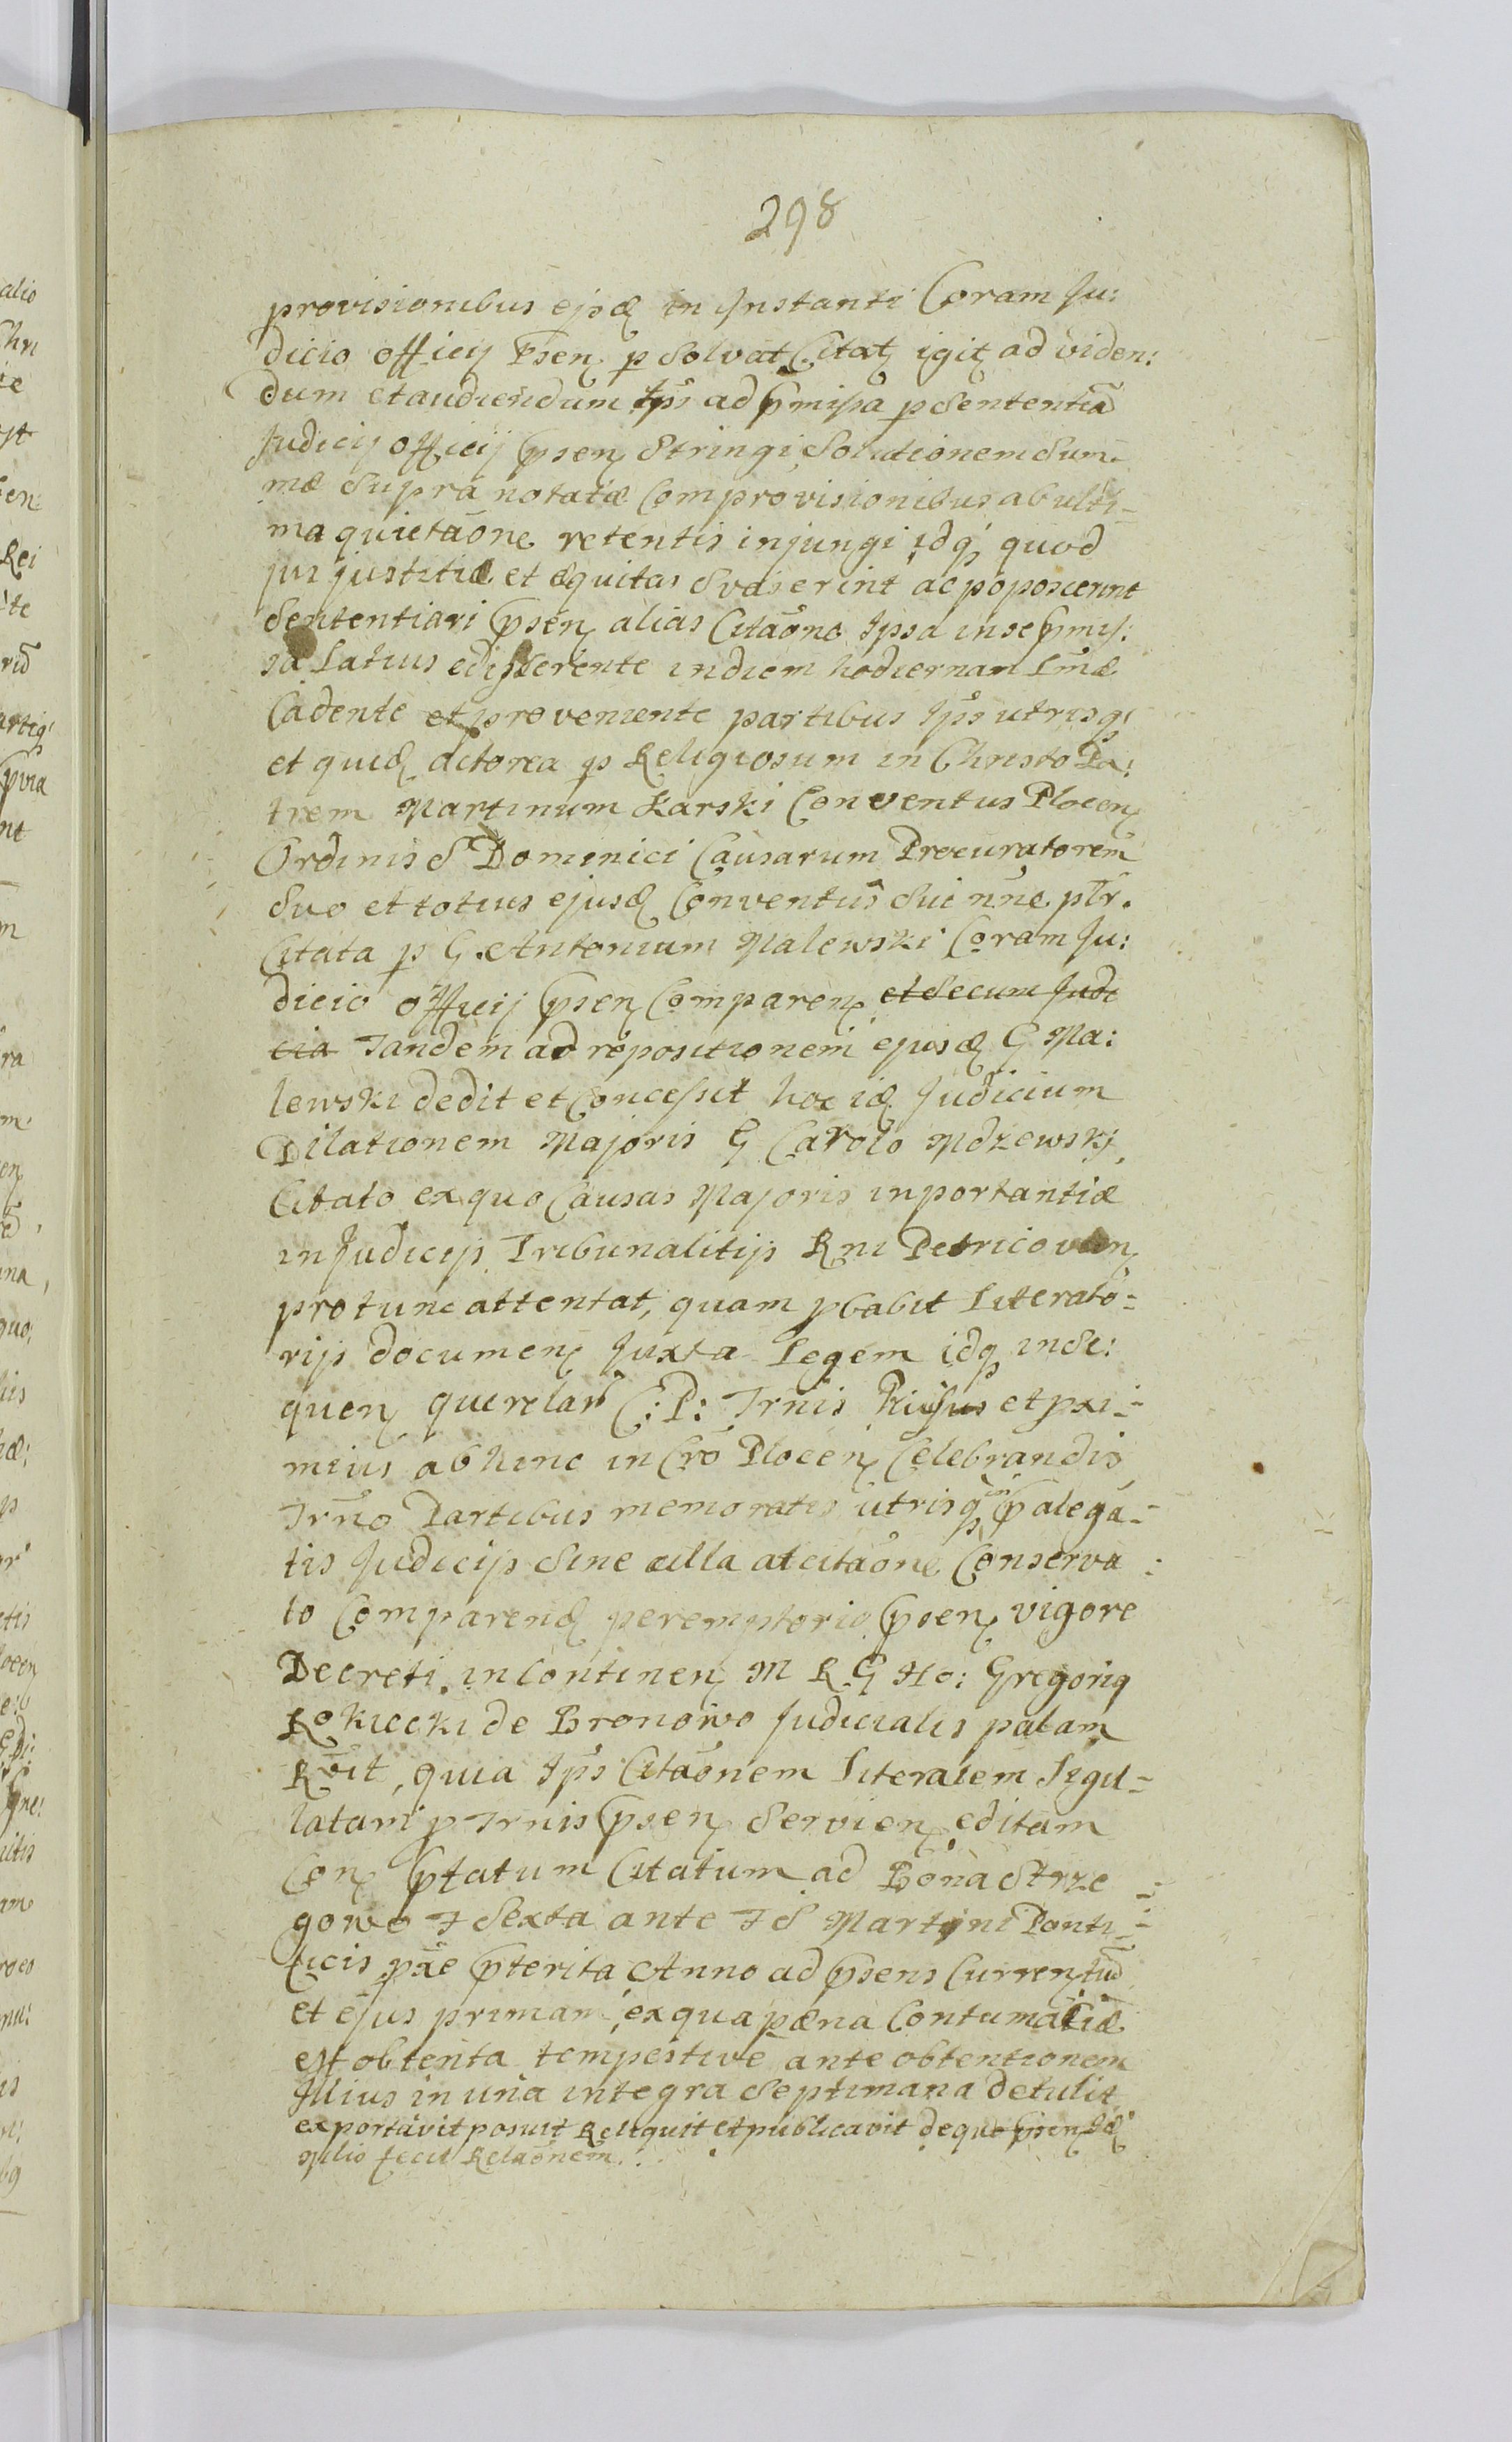 298
provisionibus ejsd in Instanti Coram Ju:
dicio officij Psen p solvat Citat igit ad viden:
dum et audiendum Ips ad pmissa p Sententiã
Judicij officij psen Stringi, Solutionem Sum:
mæ Supra notatæ Com provisionibus ab ulti-
ma quietaone retentis injungi idq quod
jus justitiæ et æquitas Svaserint ac poposcerint
Sententiari psen alias Citaone Ipsa in se pmis:
sa Latius edisserente in diem hodiernam Lmæ
Cadente et proveniente partibus Ips utrisq
et quid actorea p Religiosum in Christo Pa:
trem Martinum Karski Conventus Plocen
Ordinis S Dominici Causarum Procuratorem
Suo et totius ejusd Conventus Sui nne ptr.
Citata p G. Antonium Malewski Coram Ju:
dicio officij psen Comparen et Secum Judi
cia Tandem ad repositionem ejusd G Ma:
lewski dedit et Concessit hoc id Judicium
Dilationem Majoris G Carolo Mdzewski
Citato ex quo Causas Majoris inportantiæ
in Judicijs Tribunalitijs Rni Petricovien
pro tunc attentat, quam pbabit Literato-
rijs documen Juxta Legem idq inse:
quen querelar C: P: Trnis et pxi-
mius ab hinc in Cro Plocen Celebrandis
Trno Partibus memoratis utrisq in palega-
tis Judicijs Sine ulla atcitaone Conserva:
to Comparend peremptorio psen vigore
Decreti. in Continen M R G Ho: Gregoriq
Rokicki de Bronowo Judicialis palam
Rvit, quia Ips Citaonem Literalem Sigil-
latam p Trnis psen Servien editam
Con ptatum Citatum ad Bona Strze-
gowo F Sexta ante F S Martini Ponti-
ficis pxe pterita Anno ad psens Curren tum
et ejus primam, ex qua pæna Contumatiæ
est obtenta tempestive ante obtentionem
Illius in una integra Septimana detulit
exportavit posuit Reliquit et publicavit de quo psen Id
Milio fecit Relaonem.